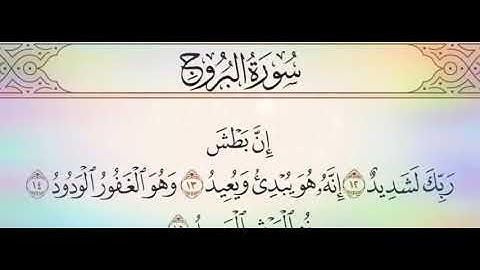 سُورَةُ الْبُرُوجِ
إِنَّ بَطْشَ
رَبِّكَ لَشَدِيدٌ ١٢ إِنَّهُۥ هُوَ يُبْدِئُ وَيُعِيدُ ١٣ وَهُوَ ٱلْغَفُورُ ٱلْوَدُودُ ١٤